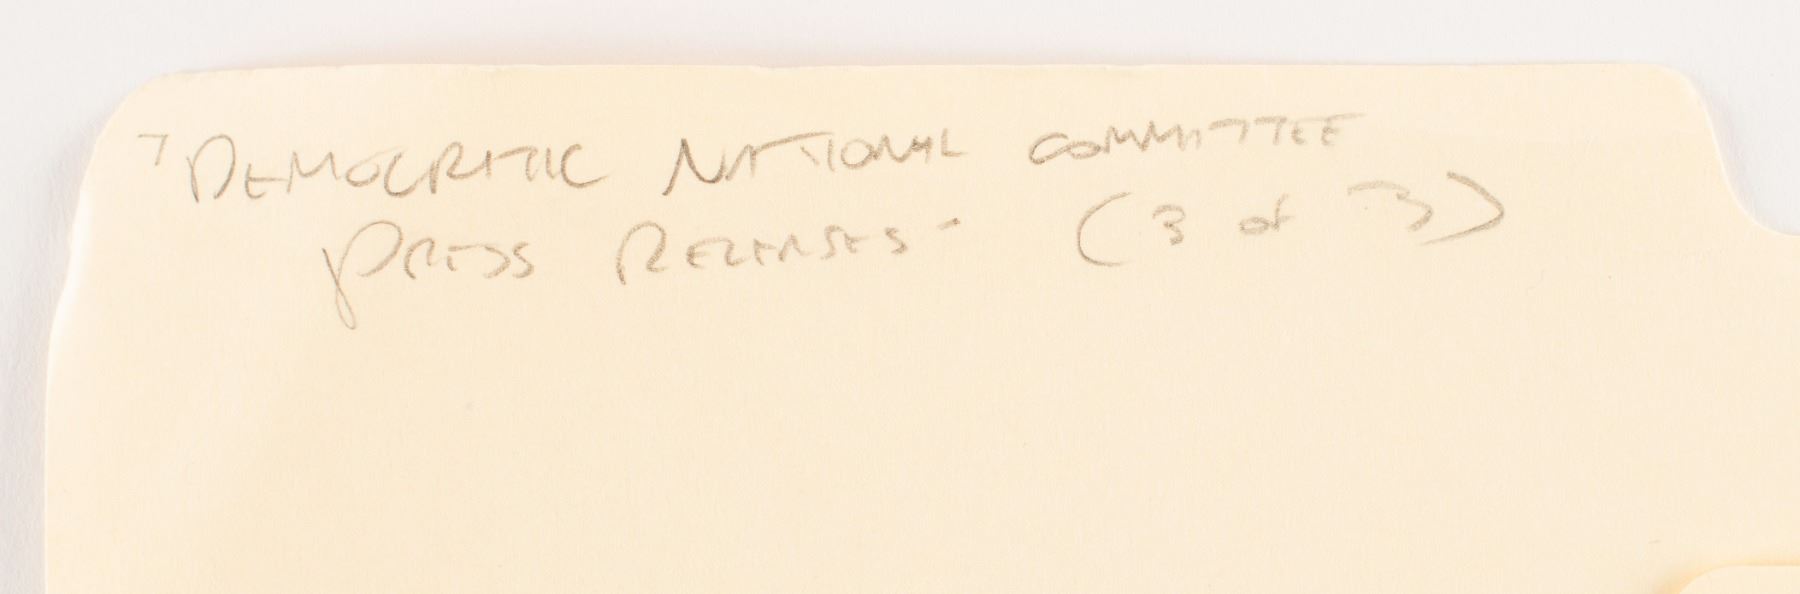 "DEMOCRATIC NATIONAL COMMITTEE
PRESS RELEASES" (3 of 3)